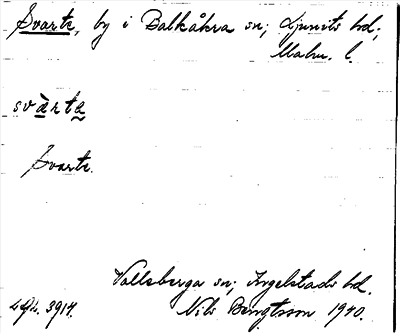 Svarte, by i Balkåkra sn; Ljunits hd;
Malm. l.
svàrta
Svarte.
Valleberga sn; Ingelstads hd.
Nils Bengtsson 1940.